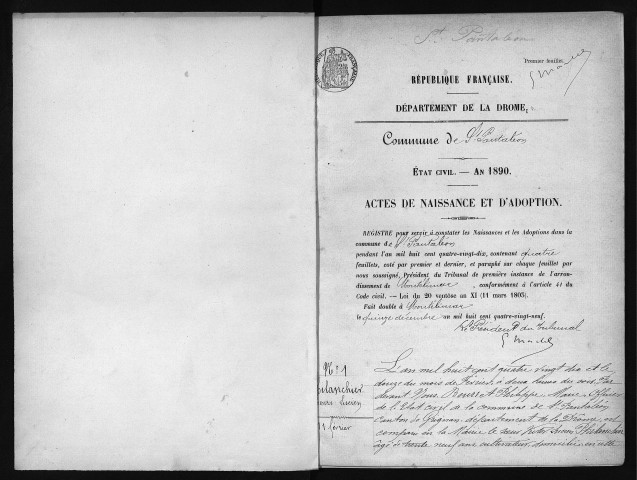 St Pantaléon
Premier feuillet
RÉPUBLIQUE FRANÇAISE.
DÉPARTEMENT DE LA DROME,
Commune de St Pantaléon
ÉTAT CIVIL. — AN 1890.
ACTES DE NAISSANCE ET D'ADOPTION.
REGISTRE pour servir à constater les Naissances et les Adoptions dans la
commune de St Pantaléon
pendant l'an mil huit cent quatre-vingt-dix, contenant quatre
feuillets, coté par premier et dernier, et paraphé sur chaque feuillet par
nous soussigné, Président du Tribunal de première instance de l'arron-
dissement de Montélimar, conformément à l'article 41 du
Code civil. — Loi du 20 ventôse an XI (11 mars 1803).
Fait double à Montélimar
le quinze décembre an mil huit cent quatre-vingt-neuf.
Le Président du Tribunal
N° 1
février
L'an mil huit cent quatre vingt dix et le
douze du mois de Février, à deux heures du soir, Par
devant Nous Philippe, Maire, Officier
de l'Etat civil de la commune de St Pantaléon
Canton de Grignan, département de la Drôme, est
comparu en la Mairie le sieur
âgé de trente neuf ans cultivateur, domicilié en cette